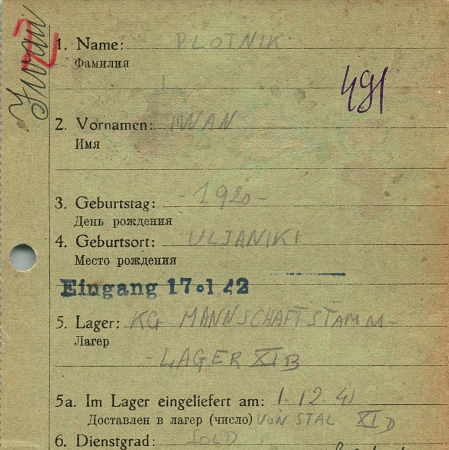 Iwan
1. Name: PLOTNIK
Фамилия
491
2. Vornamen: IWAN
Имя
3. Geburtstag: -1920-
День рождения
4. Geburtsort: ULJANIKI
Место рождения
Eingang 17.1 42
5. Lager: KG MANNSCHAFTSTAMM-
Лагер
-LAGER XI B
5a. Im Lager eingeliefert am: 1.12.41
Доставлен в лагер (число) VON STAL XI D
6. Dienstgrad: SOLD